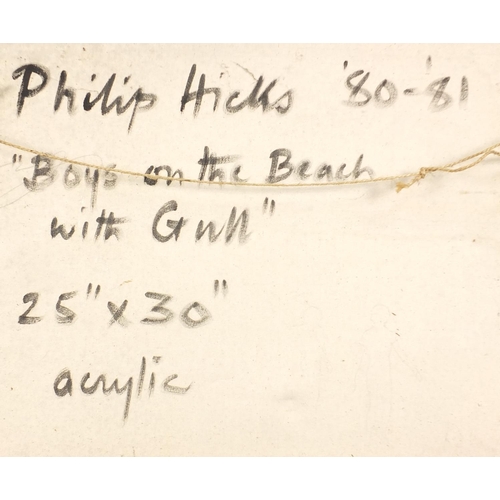 Philip Hicks '80-'81
"Boys on the Beach
with Gull"
25" x 30"
acrylic